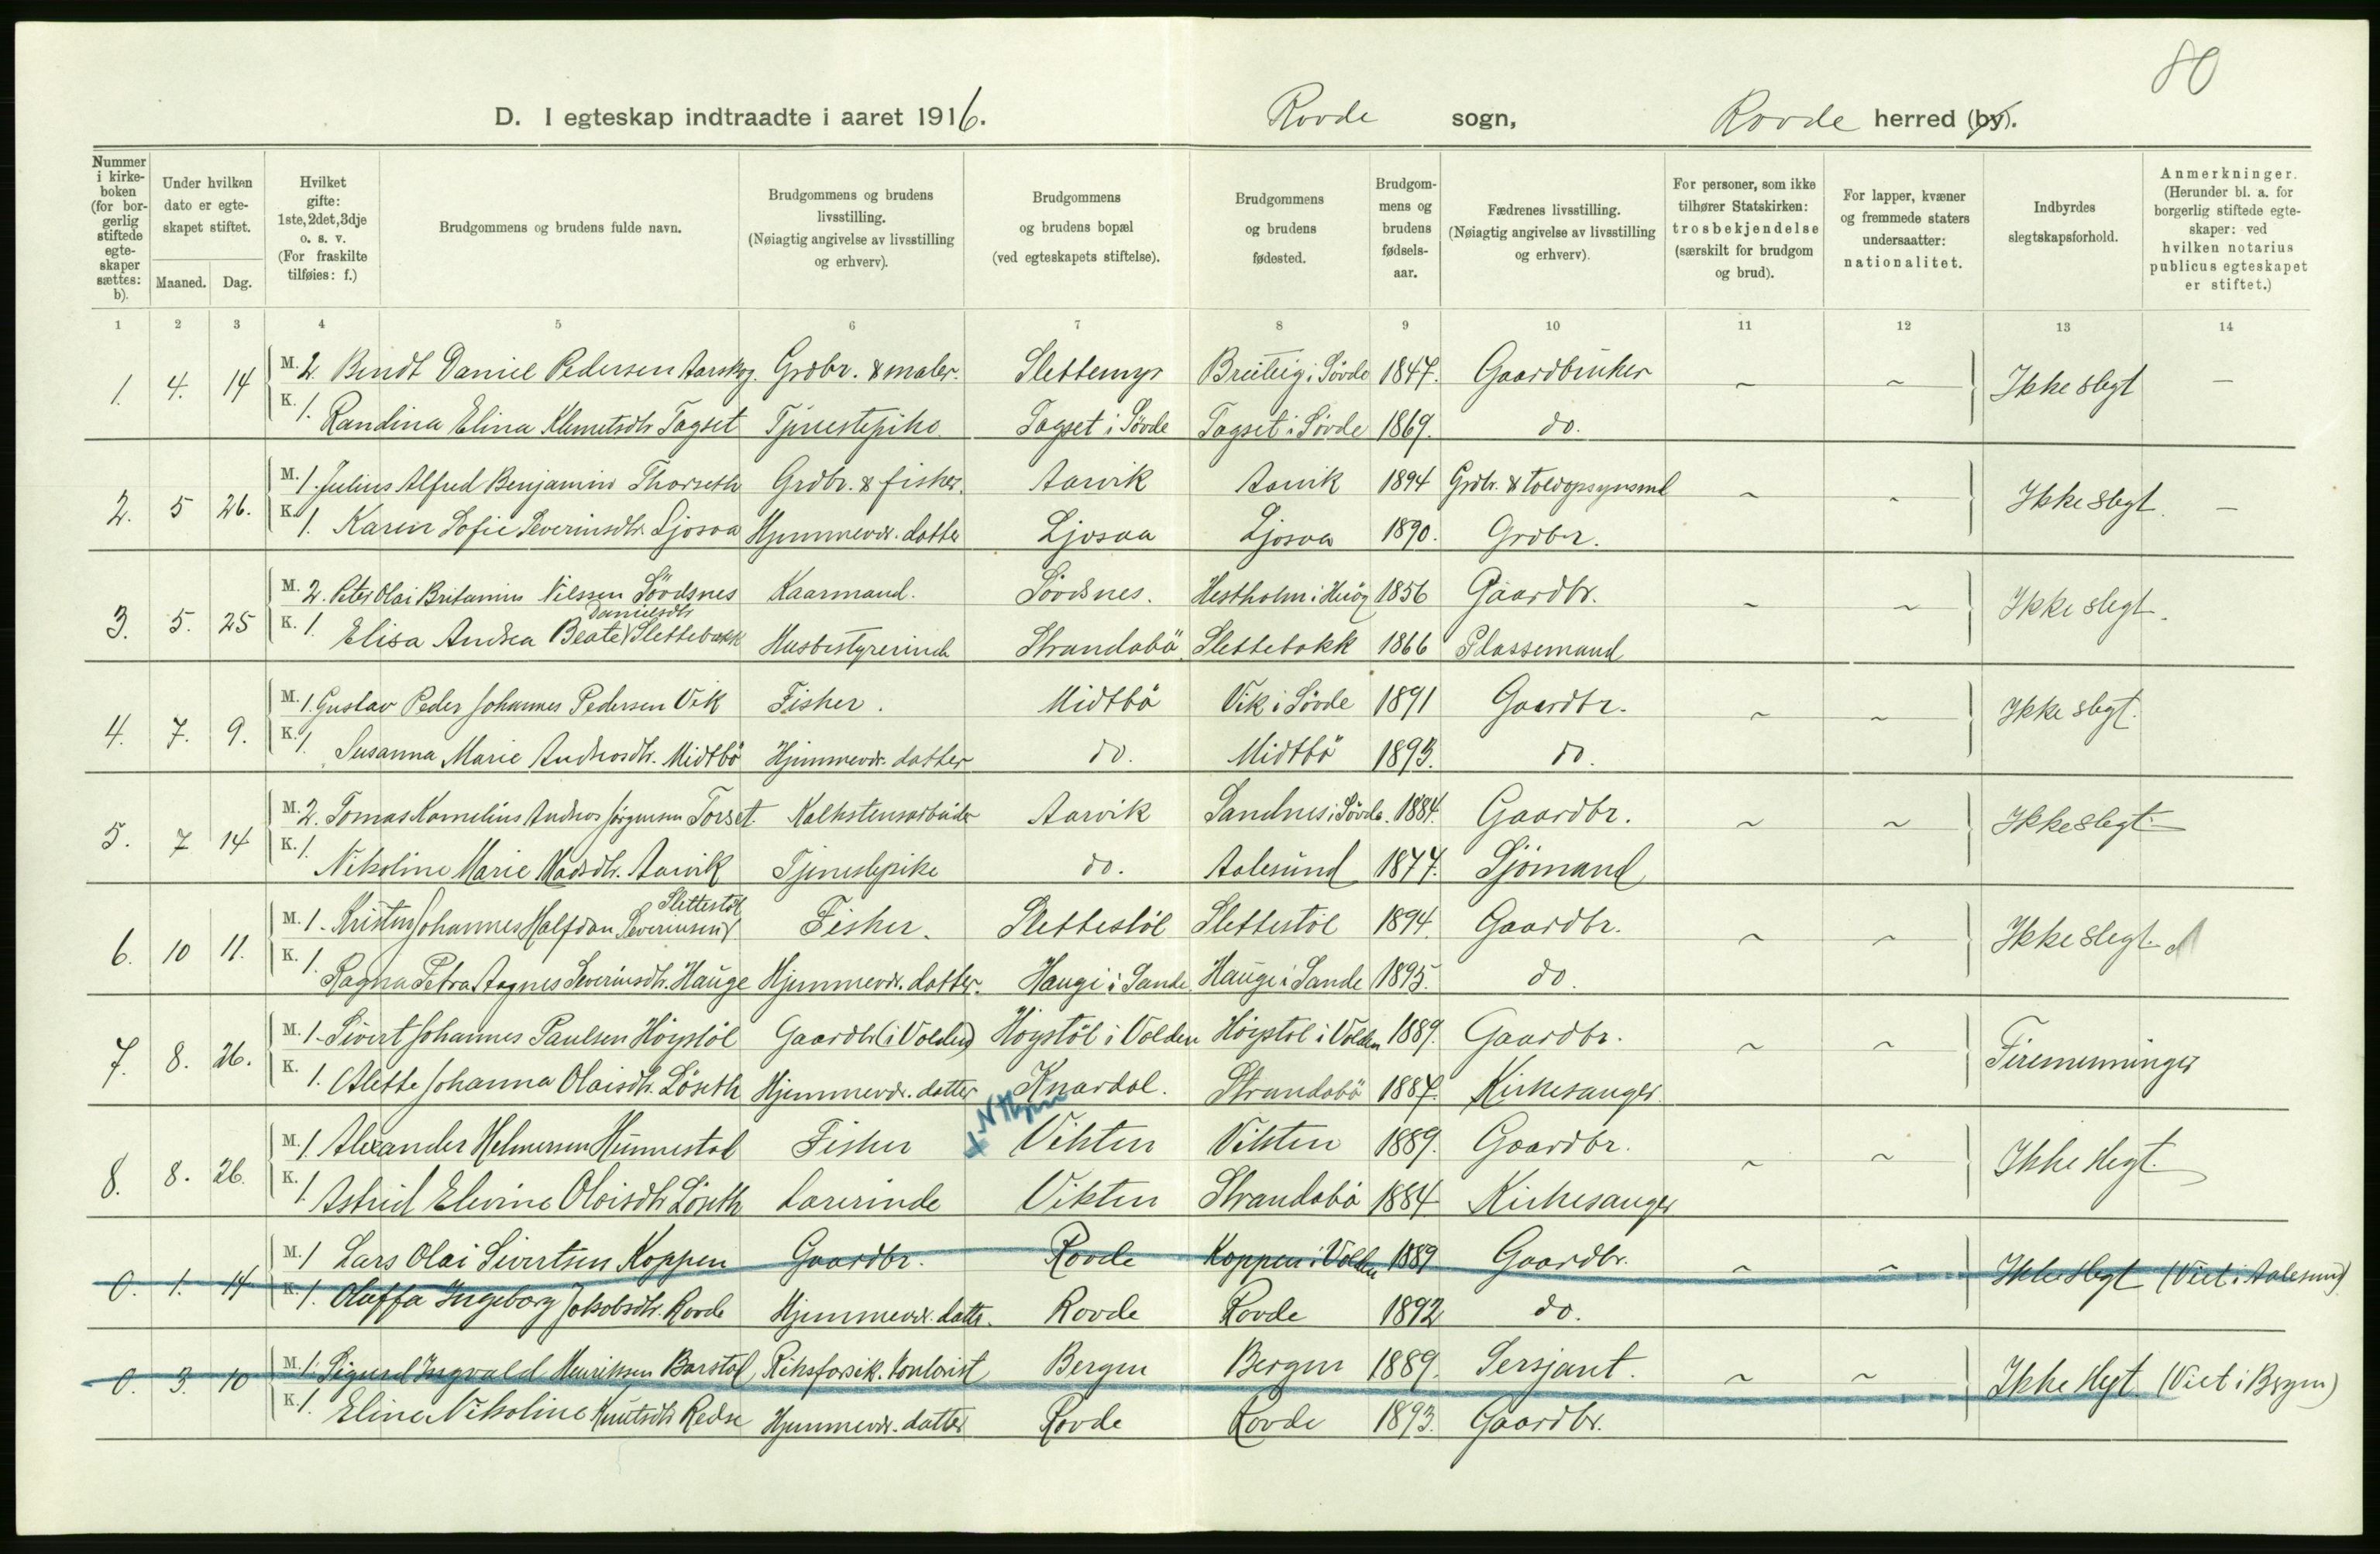 80
D. I egteskap indtraadte i aaret 1916. Rovde sogn, Rovde herred (by).
Nummer i kirke-boken (for bor-gerlig stiftede egte-skaper sættes: b). Under hvilken dato er egte-skapet stiftet. Maaned. Dag. Hvilket gifte: 1ste, 2det, 3dje o. s. v. (For fraskilte tilføies: f.) Brudgommens og brudens fulde navn. Brudgommens og brudens livsstilling. (Nøiagtig angivelse av livsstilling og erhverv). Brudgommens og brudens bopæl (ved egteskapets stiftelse). Brudgommens og brudens fødested. Brudgom-mens og brudens fødsels-aar. Fædrenes livsstilling. (Nøiagtig angivelse av livsstilling og erhverv). For personer, som ikke tilhører Statskirken: trosbekjendelse (særskilt for brudgom og brud). For lapper, kvæner og fremmede staters undersaatter: nationalitet. Indbyrdes slegtskapsforhold. Anmerkninger. (Herunder bl. a. for borgerlig stiftede egte-skaper: ved hvilken notarius publicus egteskapet er stiftet.)
1 2 3 4 5 6 7 8 9 10 11 12 13 14
1. 4. 14 M. 2. Bendt Daniel Pedersen Aarskog. Grdbr. & maler. Slettemyr i Søvde 1847. Gaardbruker ~ ~ Ikke slegt —
K. 1. Randina Elina Klemetsdtr Tagset Tjenestepike Tagset i Søvde Tagset i Søvde 1869. do.
2. 5 26. M. 1. Julius Alfred Benjamin Thorseth Grdbr. & fisker. Aarvik Aarvik 1894 Grdbr. & toldopsynsmd ~ ~ Ikke slegt. —
K. 1. Karen Sofie Severinsdtr. Ljosaa Hjemmevær. datter Ljosaa Ljosaa 1890. Grdbr.
3. 5. 25 M. 2. Peter Olai Britanius Nilssen Søvdsnes Kaarmand. Søvdsnes. Hestholm i Herøy 1856 Gaardbr. ~ ~ Ikke slegt.
Danielsdtr
K. 1. Elisa Andrea Beate Slettebakk Husbestyrerinde Strandabø Slettebakk 1866 Plassemand
4. 7. 9. M. 1. Gustav Peder Johannes Pedersen Vik Fisker. Midtbø Vik i Søvde 1891 Gaardbr. ~ ~ Ikke slegt.
K. 1. Susanna Marie Andreasdtr. Midtbø Hjemmevær. datter do. Midtbø 1893. do.
5. 7 14 M. 2. Tomas Kornelius Andreas Jørgensen Torset. Kalkstensarbeider Aarvik Sandnes i Søvde. 1884. Gaardbr. ~ ~ Ikke slegt.
K. 1. Nikoline Marie Madsdtr. Aarvik Tjenestepike do. Aalesund 1877. Sjømand
Slettestøl
6. 10 11. M. 1. Kristen Johannes Halfdan Severinsen Fisker. Slettestøl Slettestøl 1894. Gaardbr. ~ ~ Ikke slegt.
K. 1. Ragna Petra Agnes Severinsdtr. Hauge Hjemmevær. datter. Hauge i Sande Hauge i Sande 1895. do.
7. 8. 26. M. 1. Sivert Johannes Paulsen Høystøl Gaardbr. (i Volden) Høgstøl i Volden Høystøl i Volden 1889. Gaardbr. ~ ~ Firemenninger
K. 1. Alette Johanna Olaisdtr. Løseth Hjemmevær. datter Knardal. Strandabø 1887. Kirkesanger
8. 8. 26. M. 1 Alexander Helmersen Hunnestad Fisker Vikten Vikten 1889. Gaardbr. ~ ~ Ikke slegt.
K. 1. Astrid Elevine Olaisdtr Løseth Lærerinde Vikten Strandabø 1884 Kirkesanger
0. 1. 14 M. 1 Lars Olai Sivertsen Koppen Gaardbr. Rovde Koppen i Volden 1889 Gaardbr. ~ ~ Ikke slegt (Viet i Aalesund)
K. 1. Oluffa Ingeborg Jakobsdtr. Rovde Hjemmevær. datter. Rovde Rovde 1892 do.
0. 3. 10 M. 1. Sigurd Ingvald Henriksen Barstad Riksforsik. kontorist Bergen Bergen 1889. Sersjant. ~ ~ Ikke slegt (Viet i Bergen)
K. 1. Eline Nikoline Knutsdtr Hjemmevær. datter Rovde Rovde 1893. Gaardbr.